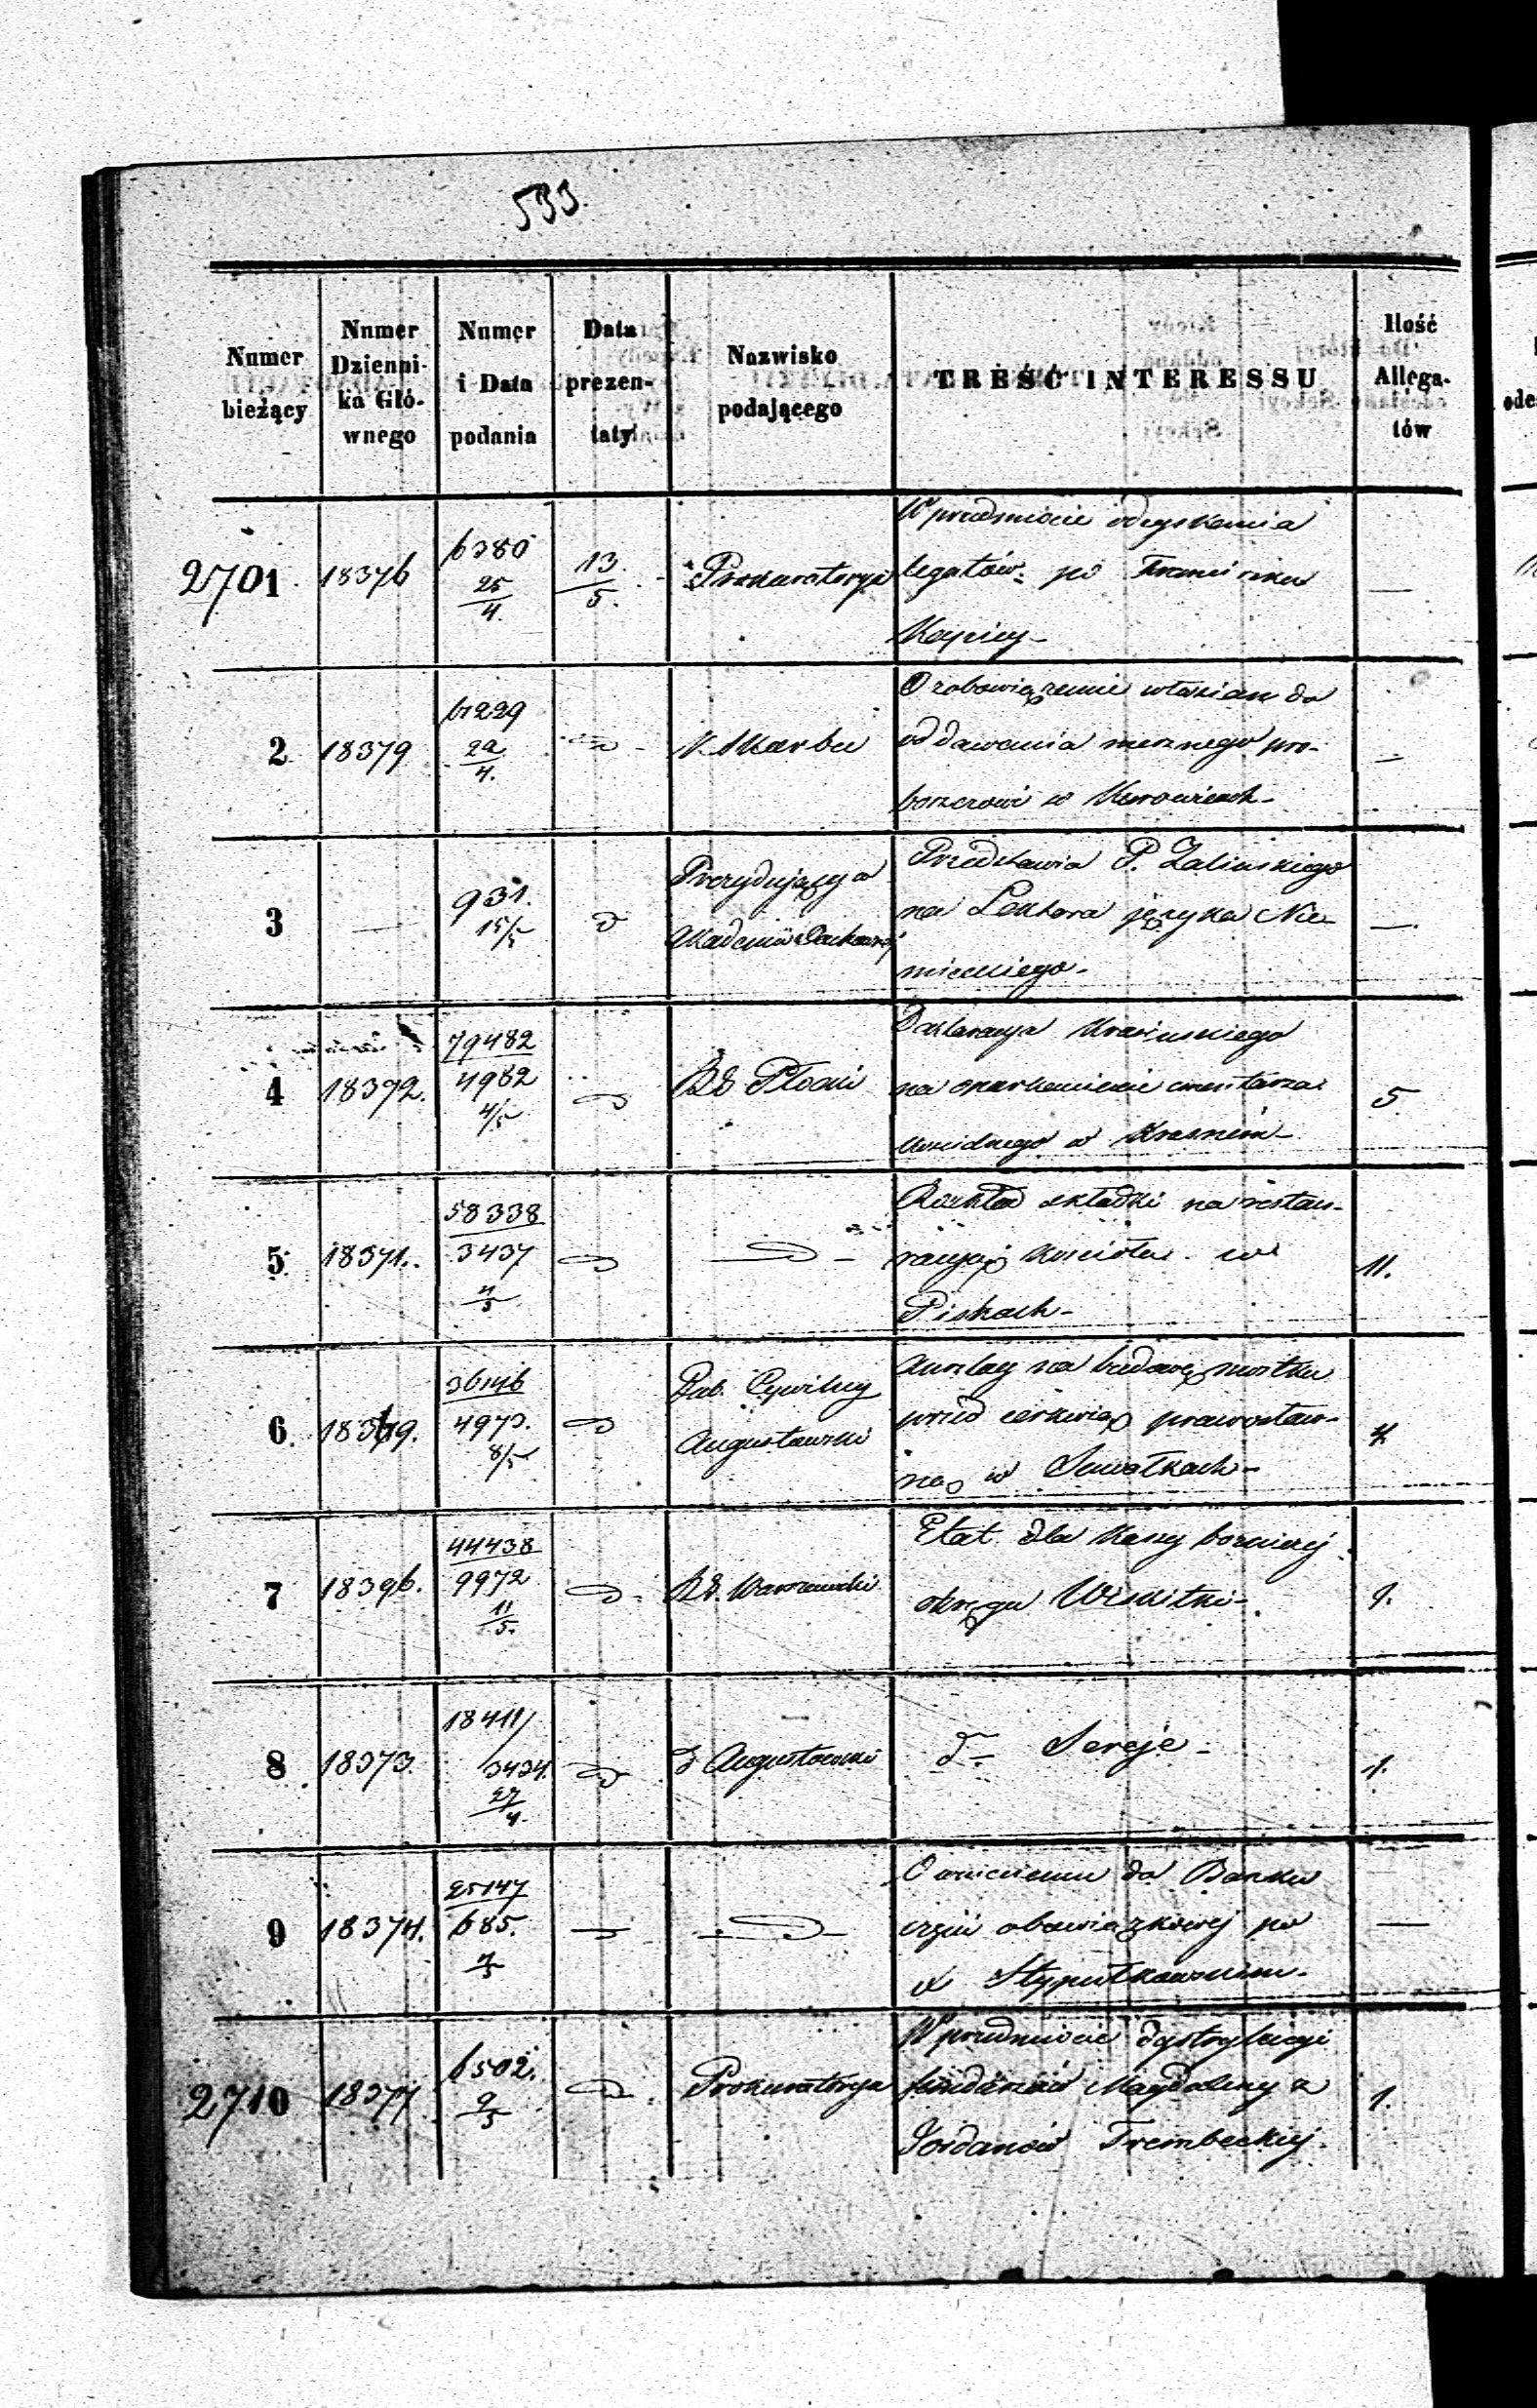 533.
Numer bieżący
Numer Dzienni-ka Głó-wnego
Numer i Data podania
Data prezen-taty
Nazwisko podającego
TREŚĆ INTERESSU
Ilość Allega-tów
2701 18376 6380 25/4 13/5 Prokuratorya
W przedmiocie odzyskania
legatów po Franciszku
—
2 18379 22/4 K. Skarbu
O zobowiązanie włościan do
oddawania mesznego pro-
boszczowi w
—
3 — 931. 15/5 d Prezydujący w
Akademii Duchownej
Przedstawia P. Zalinskiego
na Lektora języka Nie-
mieckiego.
—
4 18372. 79482 4982 4/5 RG Płocki
Deklaracya Krasinskiego
na oparkanienie cmentarza
w Krasnem
5
5 18371. 58338 3437 4/5
Rozkład składki na restau-
racyją Kościoła w
Piskach
11.
6. 4973. 8/5 Gub. Cywilny
Augustowski
Anszlag na budowę mostku
przed cerkwią prawosław-
ną w Suwałkach
4
7 18396. 44438 9972 11/5 RG. Warszawski
Etat dla Kassy bożniczej
okręgu Wiskitki
1.
8 18373. 18411/ 3434. 27/4 Augustowski
d Sereje
1.
9 18374. 25147 685. 4/5
O wniesieniu do Banku
obowiązkowej po
X Stypułkowskim.
—
2710 18377 6502. 9/5 Prokuratorya
W przedmiocie dystrybucyi
funduszów Magdaleny z
Jordanów Trembeckiej
1.